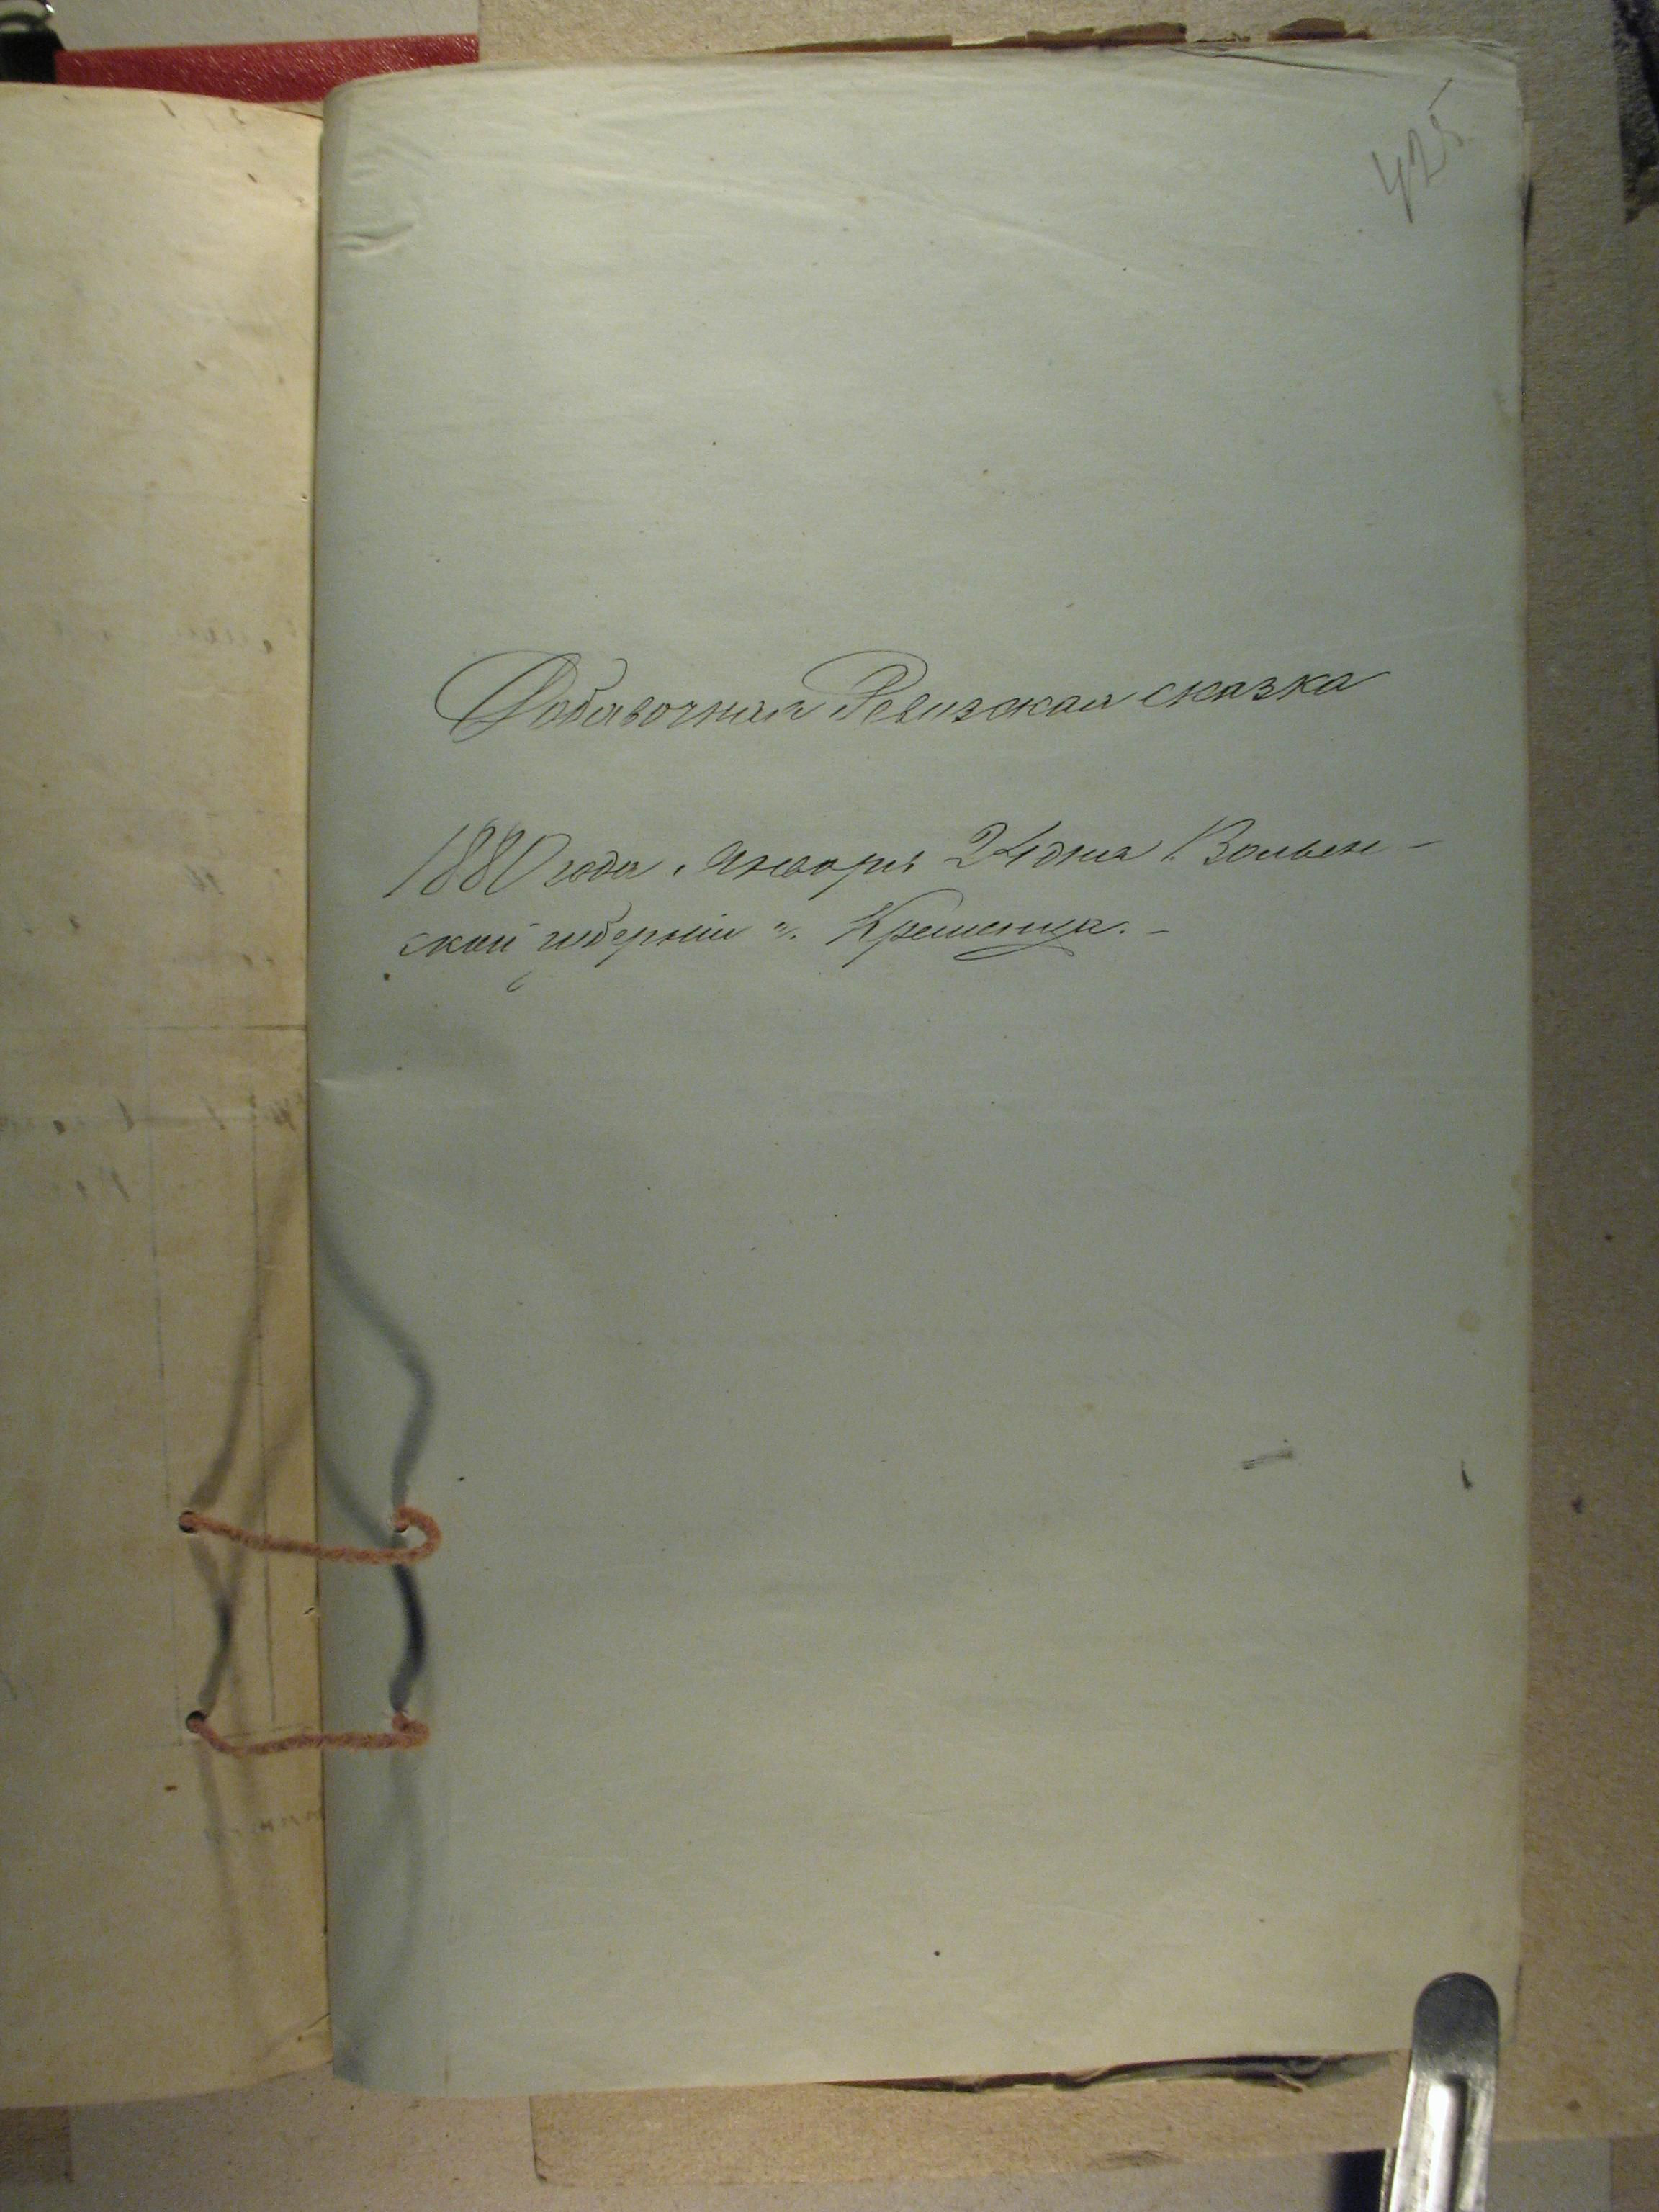 425
Добавочная Ревизская сказка
1880 года Января 24 дня Волын-
ской губерніи г. Кременца. -